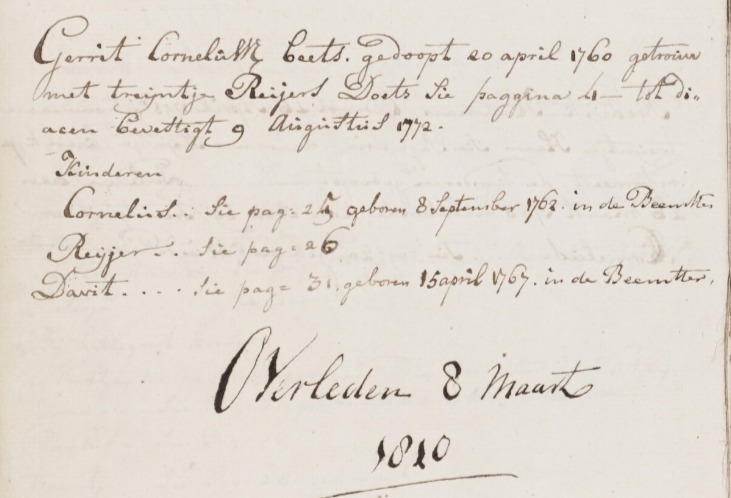 Gerrit Cornelisz beets. gedoopt 20 april 1760 getrouw
met treijntje Reijers Doets Sie paggina 4 — tot di„
acen bevettigt 9 Augustus 1772.
Kinderen
Cornelis.. Sie pag= 25 geboren 8 September 1762. in de Beemster
Reijer.. Sie pag= 26
Davit.... Sie pag= 31. geboren 15 april 1767. in de Beemster.
Overleden 8 Maart
1810